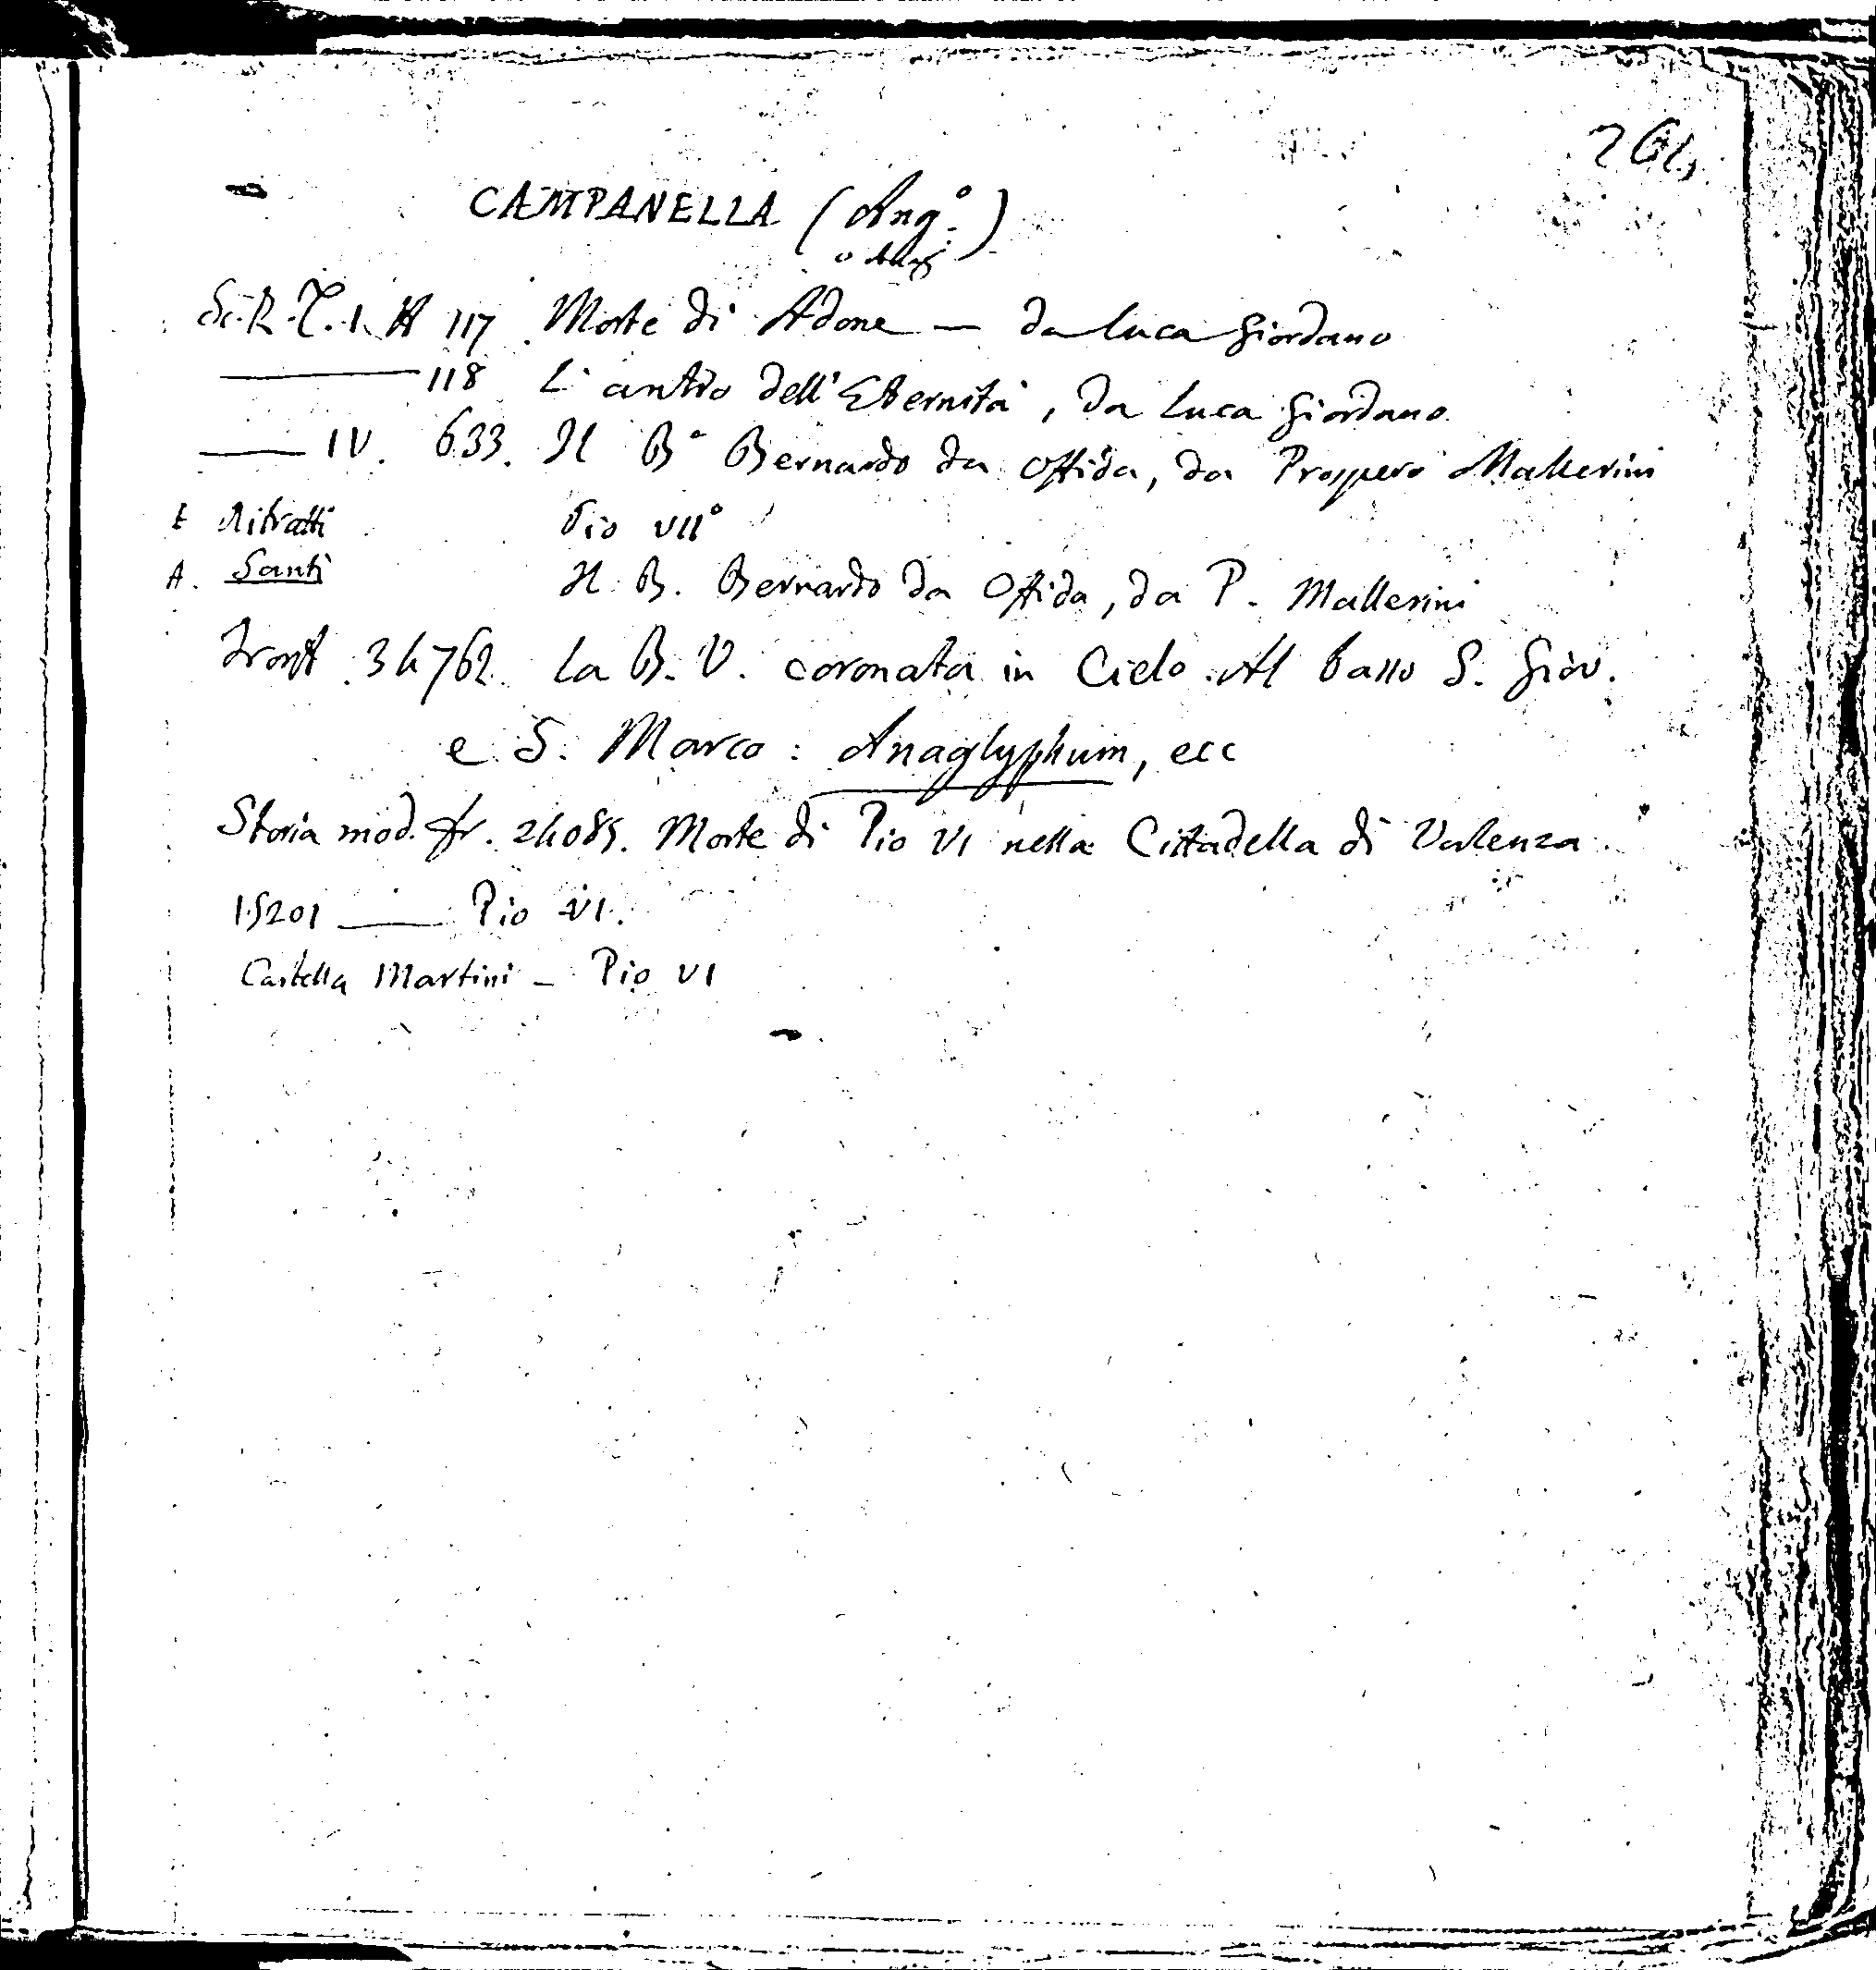 264
CAMPANELLA (Ang.º)
o Ang
Sc. R. T. I. H 117. Morte di Adone — da Luca Giordano
118 L'antro dell'Eternità, da Luca Giordano.
IV. 633. Il Bº Bernardo da Offida, da Prospero Mallerini
E Ritratti Pio VIIº
A. Santi Il B. Bernardo da Offida, da P. Mallerini
Front. 34762. La B. V. coronata in Cielo. Al basso S. Giov.
e S. Marco: Anaglyphum, ecc
Storia mod. fr. 24085. Morte di Pio VI nella Cittadella di Valenza.
15201 — Pio VI.
Cartella Martini - Pio VI